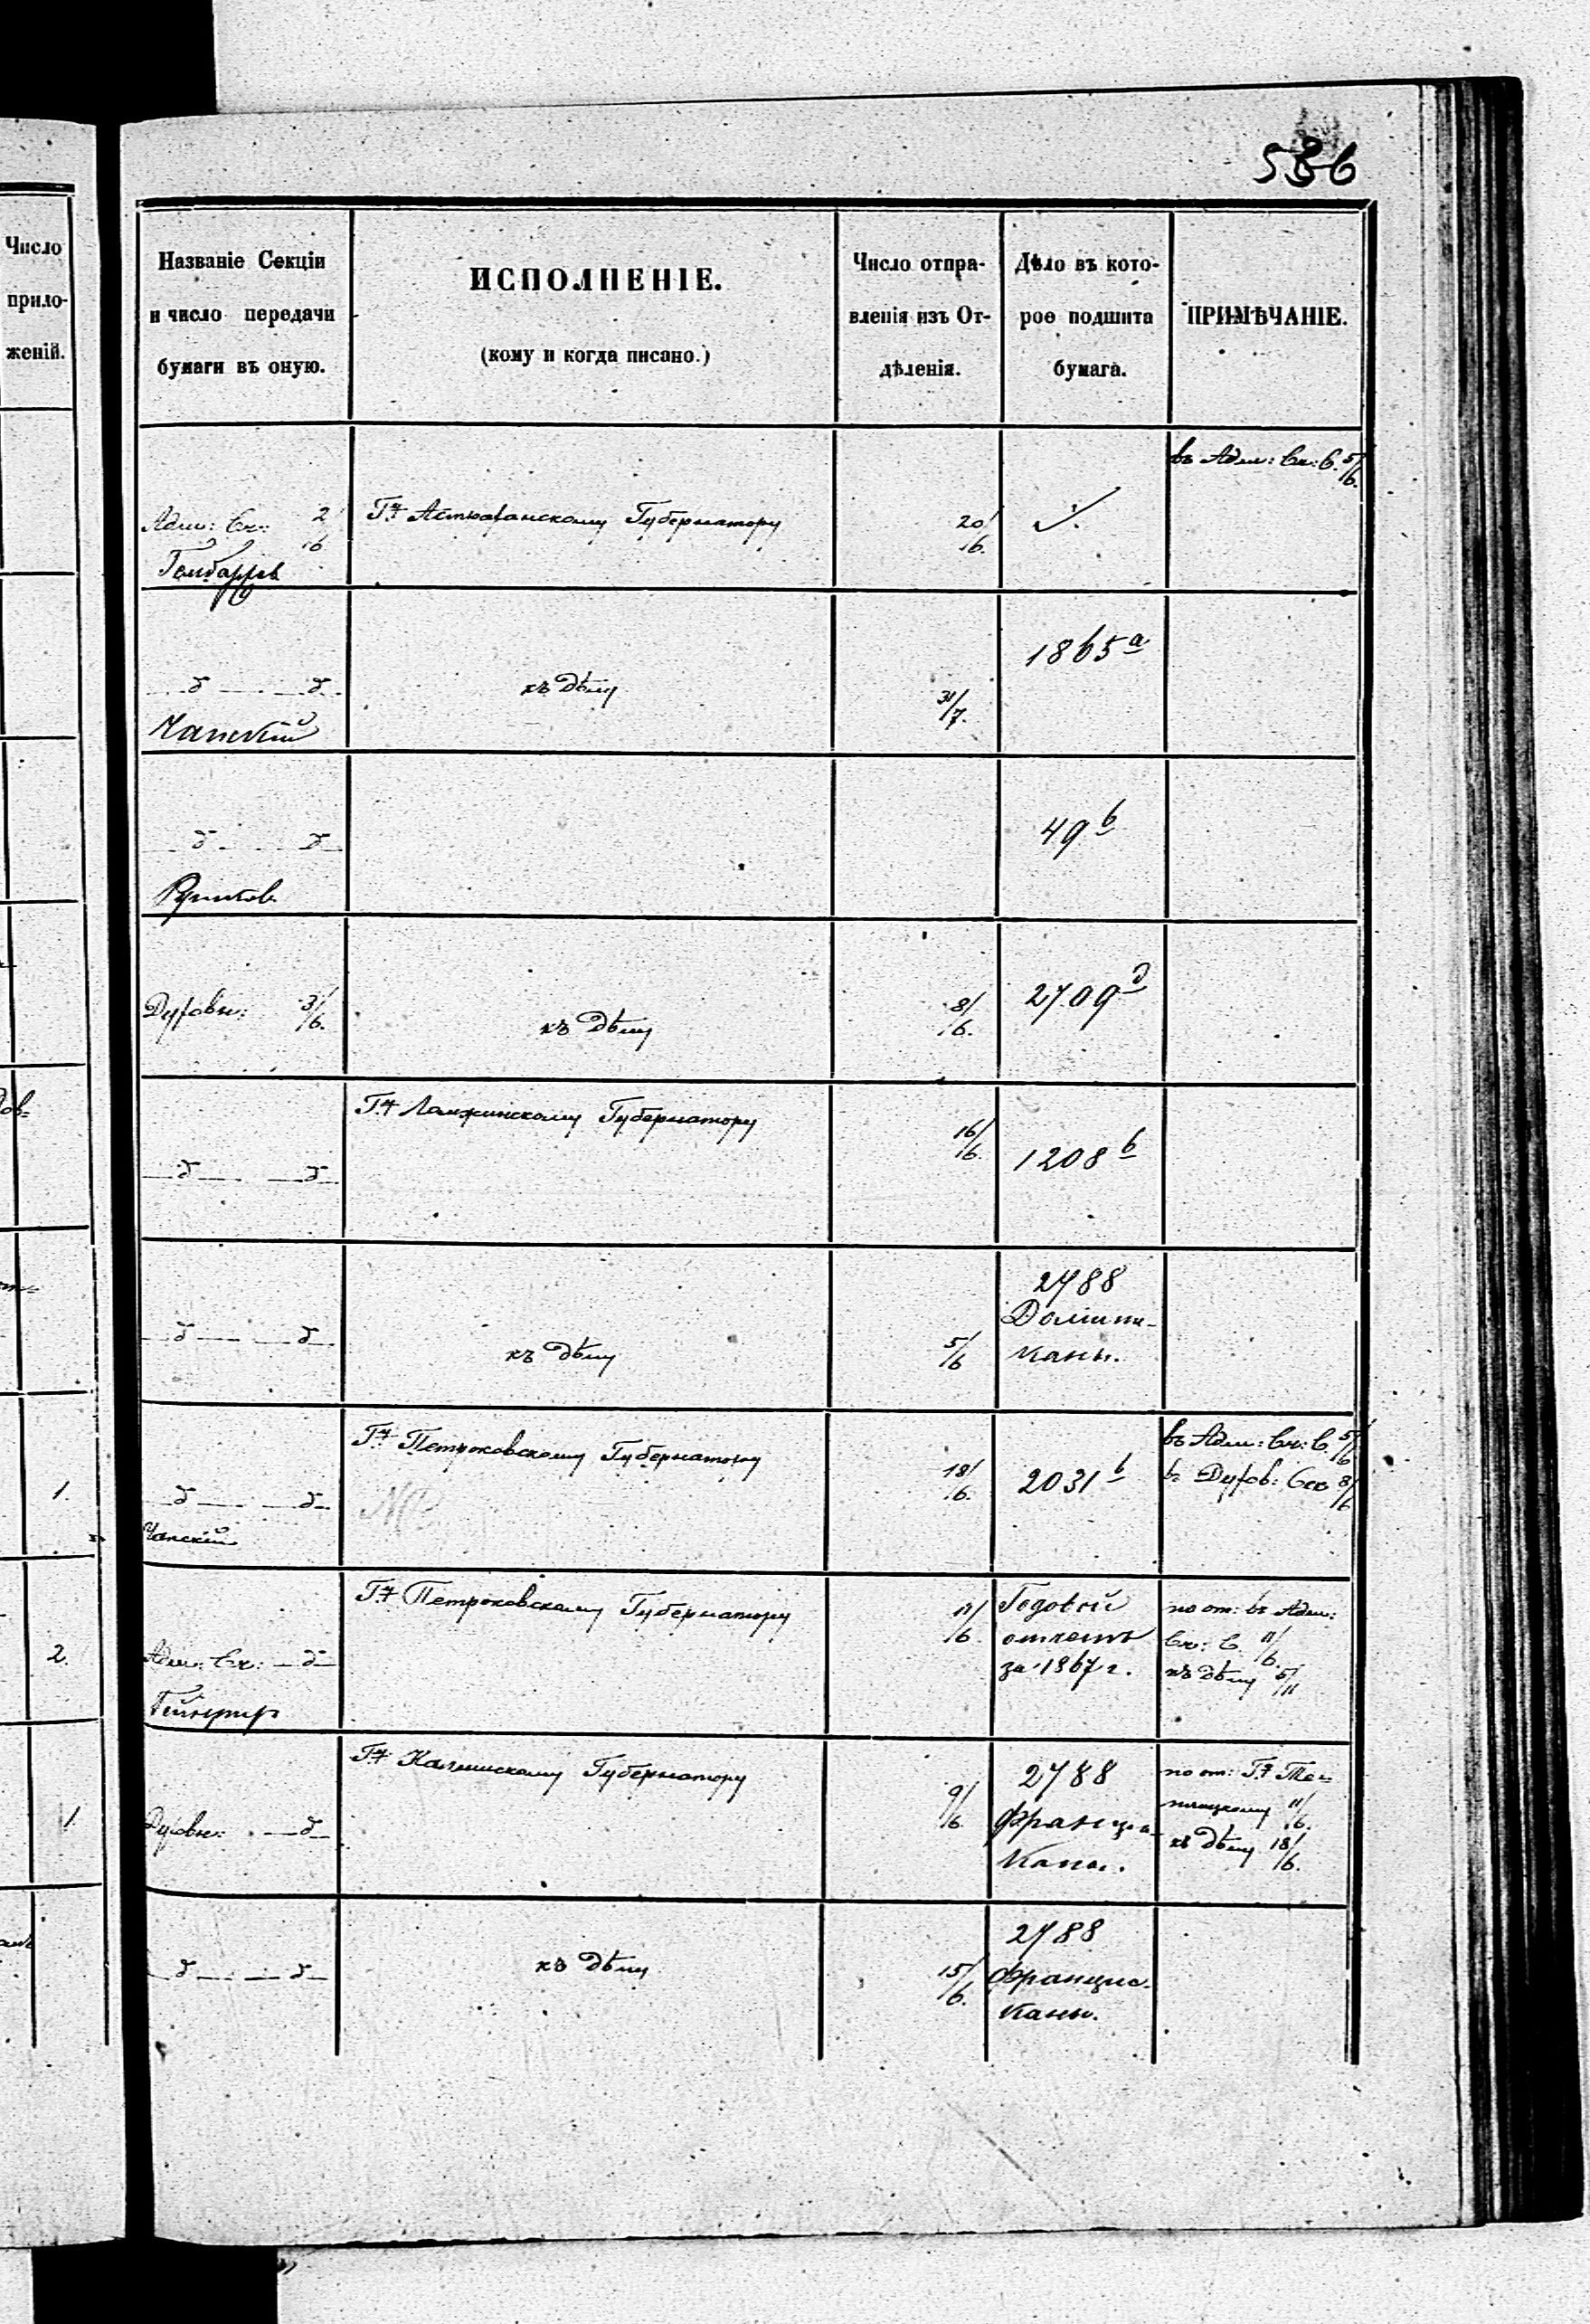 536
Число
прило-
женій.
Названіе Секціи
и число передачи
бумаги въ оную.
ИСПОЛНЕНІЕ.
(кому и когда писано.)
Число отпра-
вленія изъ От-
дѣленія.
Дѣло въ кото-
рое подшита
бумага.
ПРИМѢЧАНІЕ.
въ Адм: Ск: С. 5/6.
Адм: Ск: 2/6
Гну Астраханскому Губернатору
20/6.
къ Дѣлу
31/7.
1865 а
Чапскій
49 b
Духовн: 3/6.
къ Дѣлу
8/6.
2709 д
Гну Ломжинскому Губернатору
16/6.
1208 b
къ Дѣлу
5/6
2788
Домини-
каны.
1.
Гну Петроковскому Губернатору
18/6.
2031 b
въ Адм: Ск: С. 5/6
въ Духов: Сек 8/6
Чапскій
2.
Адм: Ск:
Гну Петроковскому Губернатору
/6.
Годовой
отчетъ
за 1867 г.
по от: въ Адм:
Ск: С. 11/6.
къ Дѣлу 5/11
1.
Духовн:
Гну Калишскому Губернатору
9/6.
2788
Францис-
каны.
по от: Гну
11/6.
къ Дѣлу 18/6.
къ Дѣлу
15/6.
2788
Францис-
каны.